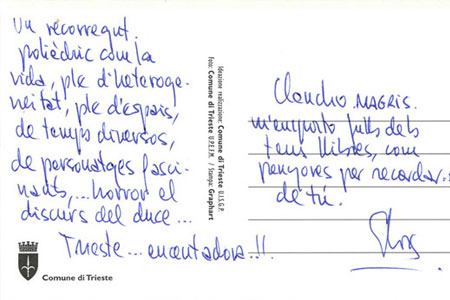 Un recorregut
polièdric com la
vida, ple d'heteroge-
neïtat, ple d'espais,
de temps diversos,
de personatges fasci-
nants,... horror el
discurs del duce...
Trieste... encantadora..!!
Comune di Trieste
Ideazione realizzazione: Comune di Trieste U.I.S.G.P.
Foto: Comune di Trieste U.P.I.F.M. - Stampa: Graphart
Claudio MAGRIS.
m'emporto fulls dels
teus llibres, com
penyores per recordar-
de tú.